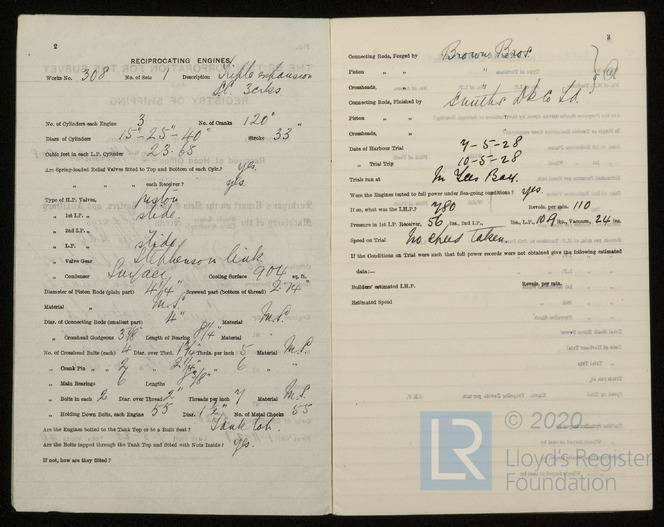 2
RECIPROCATING ENGINES
Works No. 308 No. of Sets 1 Description Triple expansion
No. of Cylinders each Engine 3 No. of Cranks 120°
Diars of Cylinders 15"-25"-40" Stroke 33"
Cubic feet in each L.P. Cylinder 23.65
Are Spring-loaded Relief Valves fitted to Top and Bottom of each Cylr.? yes.
" " " " each Receiver? yes.
Type of H.P. Valves, Piston
" 1st I.P. " slide.
" 2nd I.P. "
" L.P. " slide
" Valve Gear Stephenson link
" Condenser Surface Cooling Surface 904 sq. ft.
Diameter of Piston Rods (plain part) 4¼" Screwed part (bottom of thread)
Material M.S.
Diar. of Connecting Rods (smallest part) 4" Material M.S.
" Crosshead Gudgeons 3⅞" Length of Bearing Material
No. of Crosshead Bolts (each) 4 Diar. over Thrd. Thrds. per inch 5 Material M.S.
" Crank Pin " " 2 " 2¼" " 6 " "
" Main Bearings 6 Lengths 8⅜"
" Bolts in each 2 Diar. over Thread 2" Threads per inch 7 Material M.S.
" Holding Down Bolts, each Engine 55 Diar. 1½" No. of Metal Chocks 55
Are the Engines bolted to the Tank Top or to a Built Seat? Tank top.
Are the Bolts tapped through the Tank Top and fitted with Nuts Inside? Yes.
If not, how are they fitted?
3
Connecting Rods, Forged by Brown Bros.
Piston " " "
Crossheads, " "
Connecting Rods, Finished by
Piston " "
Crossheads, "
Date of Harbour Trial 7-5-28
" Trial Trip 10-5-28
Trials run at In Bay.
Were the Engines tested to full power under Sea-going conditions? yes.
If so, what was the I.H.P.? 780 Revols. per min. 110
Pressure in 1st I.P. Receiver, 56 lbs., 2nd I.P., lbs., L.P., lbs., Vacuum, 24 ins.
Speed on Trial No speed taken.
If the Conditions on Trial were such that full power records were not obtained give the following estimated
data:—
Builders' estimated I.H.P. Revols. per min.
Estimated Speed
LR © 2020
Lloyd's Register
Foundation